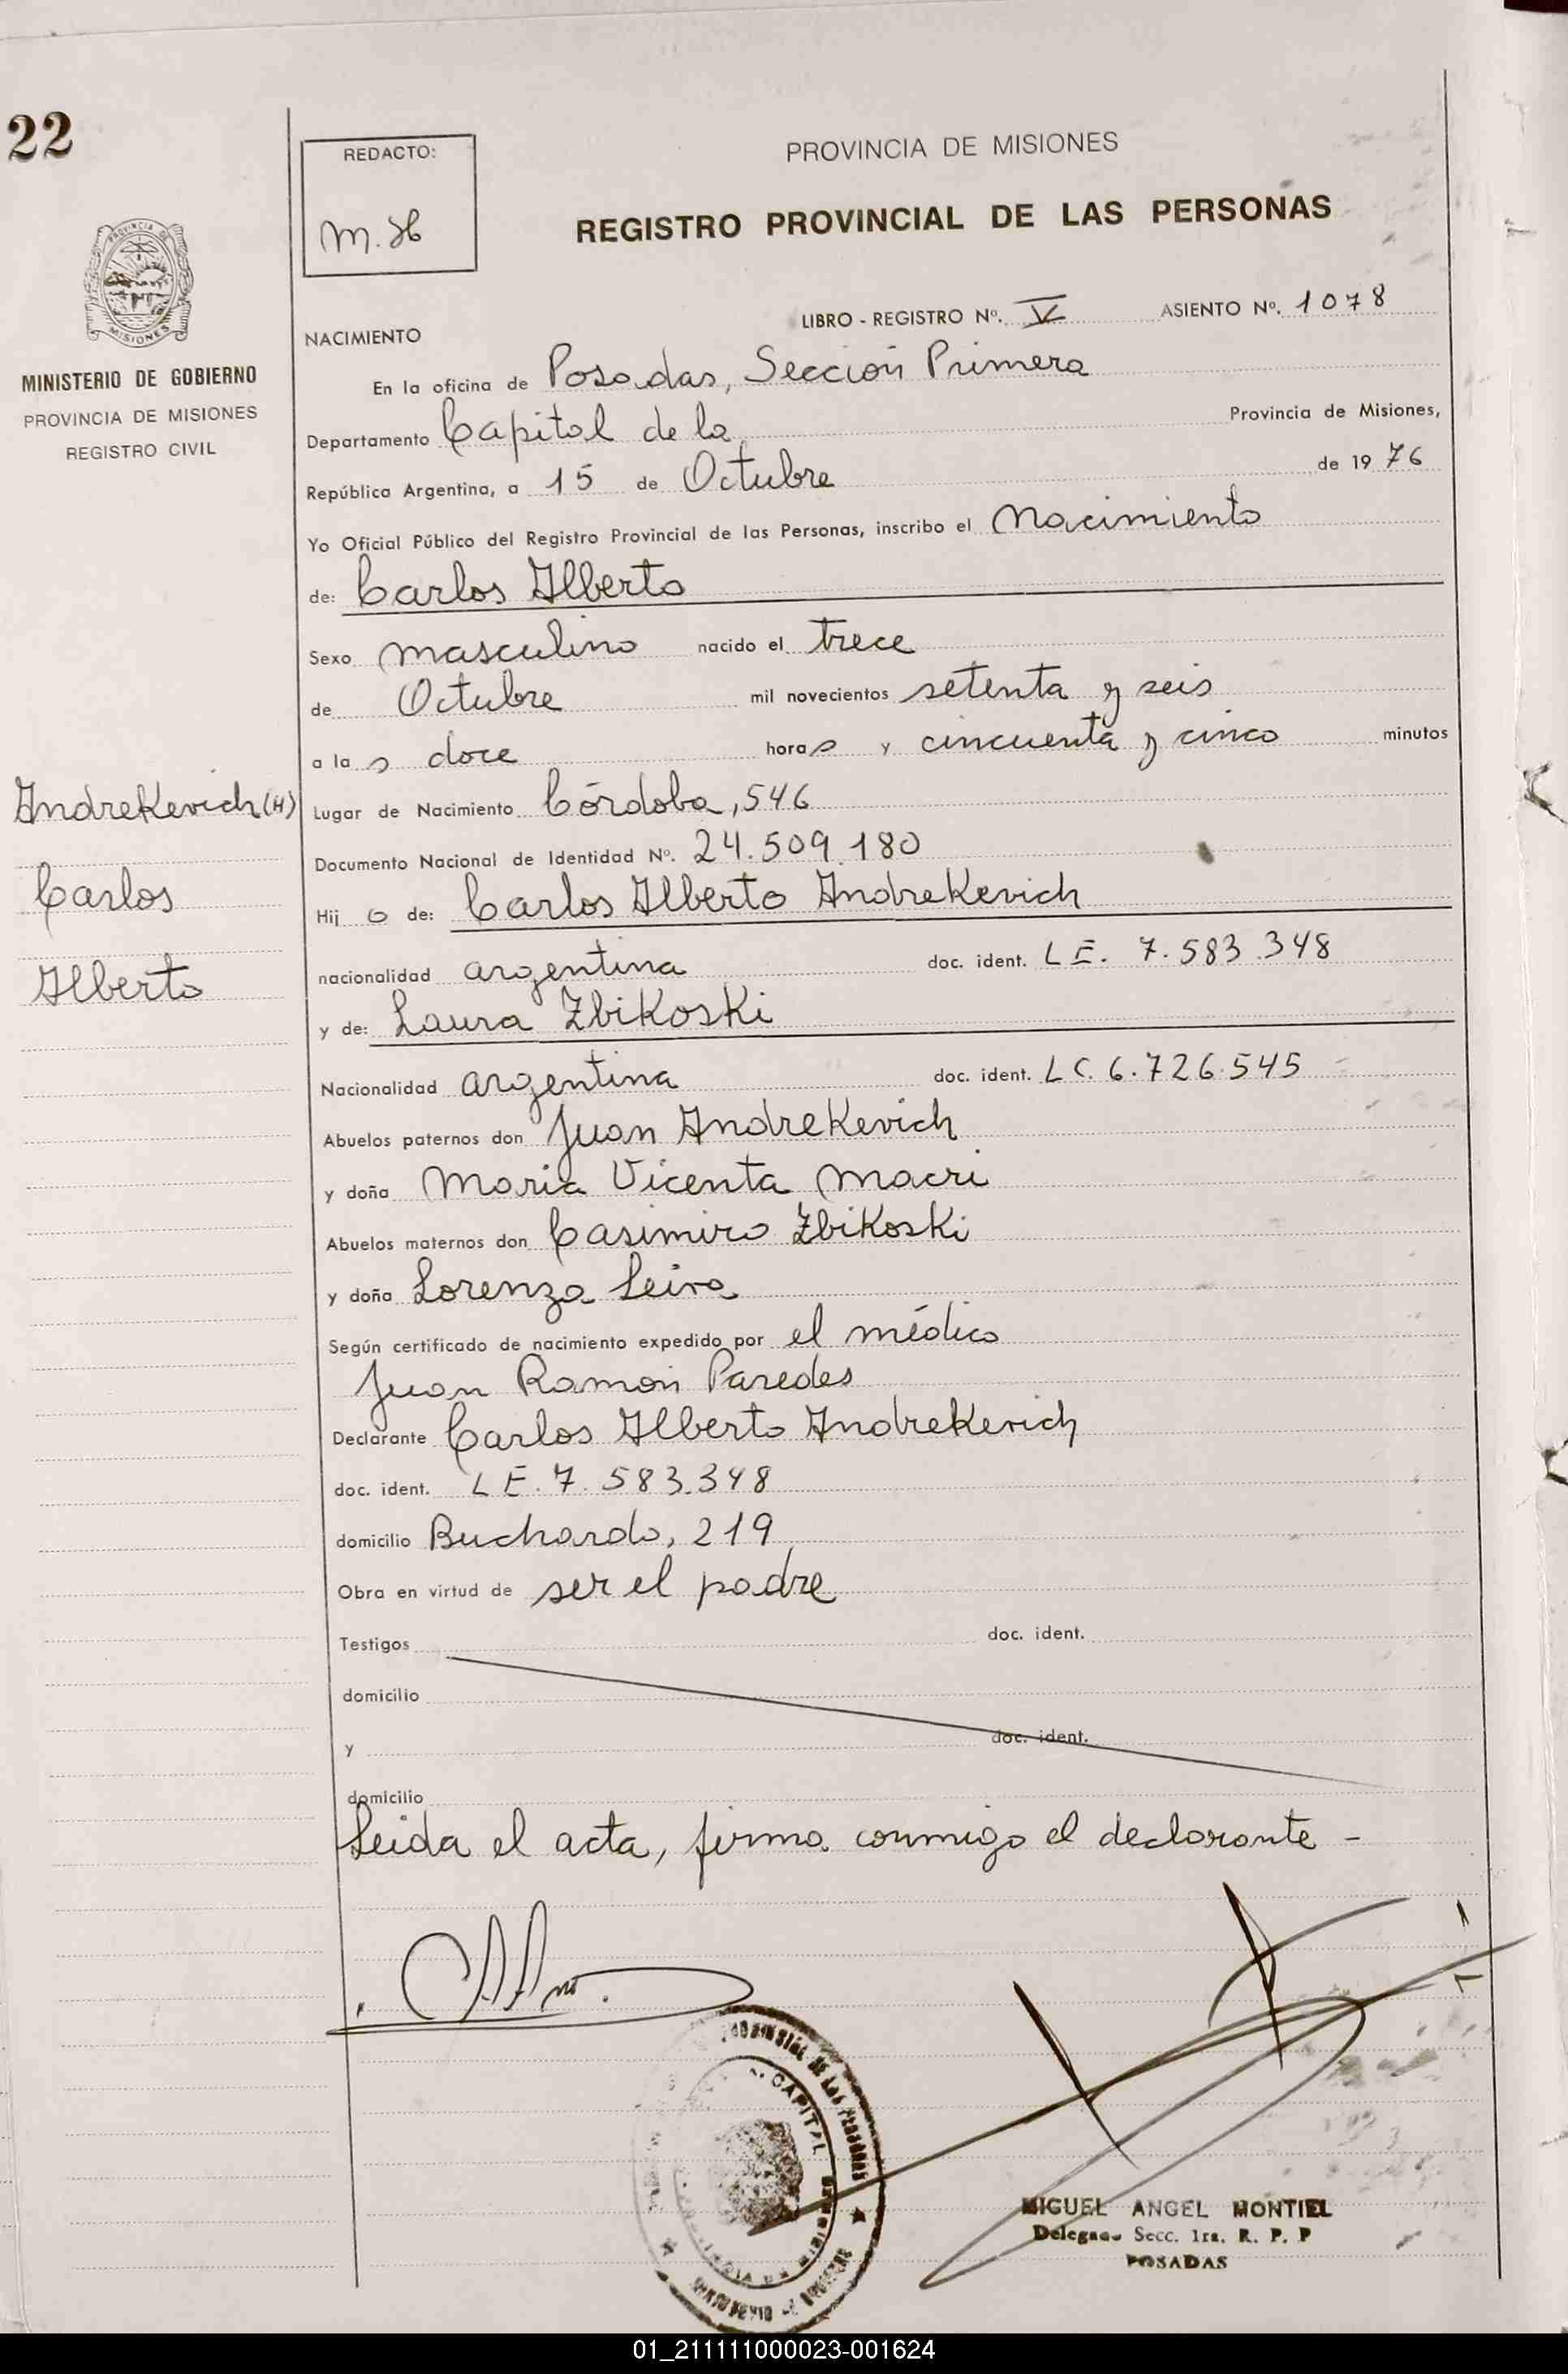 22
REDACTO:
M. H
PROVINCIA DE MISIONES
REGISTRO PROVINCIAL DE LAS PERSONAS
PROVINCIA DE
MISIONES
MINISTERIO DE GOBIERNO
PROVINCIA DE MISIONES
REGISTRO CIVIL
LIBRO - REGISTRO Nº. V ASIENTO Nº. 1078
NACIMIENTO
En la oficina de Posadas, Sección Primera
Departamento Capital de la Provincia de Misiones,
República Argentina, a 15 de Octubre de 1976
Yo Oficial Público del Registro Provincial de las Personas, inscribo el Nacimiento
de: Carlos Alberto
Sexo masculino nacido el trece
de Octubre mil novecientos setenta y seis
a las doce horas y cincuenta y cinco minutos
Andrekevich (H)
Carlos
Alberto
Lugar de Nacimiento Córdoba, 546
Documento Nacional de Identidad Nº. 24.509.180
Hijo de: Carlos Alberto Andrekevich
nacionalidad argentina doc. ident. LE. 7.583.348
y de: Laura Zbikoski
Nacionalidad argentina doc. ident. LC. 6.726.545
Abuelos paternos don Juan Andrekevich
y doña Maria Vicenta Macri
Abuelos maternos don Casimiro Zbikoski
y doña Lorenza Leiva
Según certificado de nacimiento expedido por el médico
Juan Ramón Paredes
Declarante Carlos Alberto Andrekevich
doc. ident. LE. 7.583.348
domicilio Buchardo, 219
Obra en virtud de ser el padre
Testigos doc. ident.
domicilio
y doc. ident.
domicilio
Leida el acta, firma conmigo el declarante -
CAPITAL
MIGUEL ANGEL MONTIEL
Delegado Secc. 1ra. R. P. P
POSADAS
01_211111000023-001624